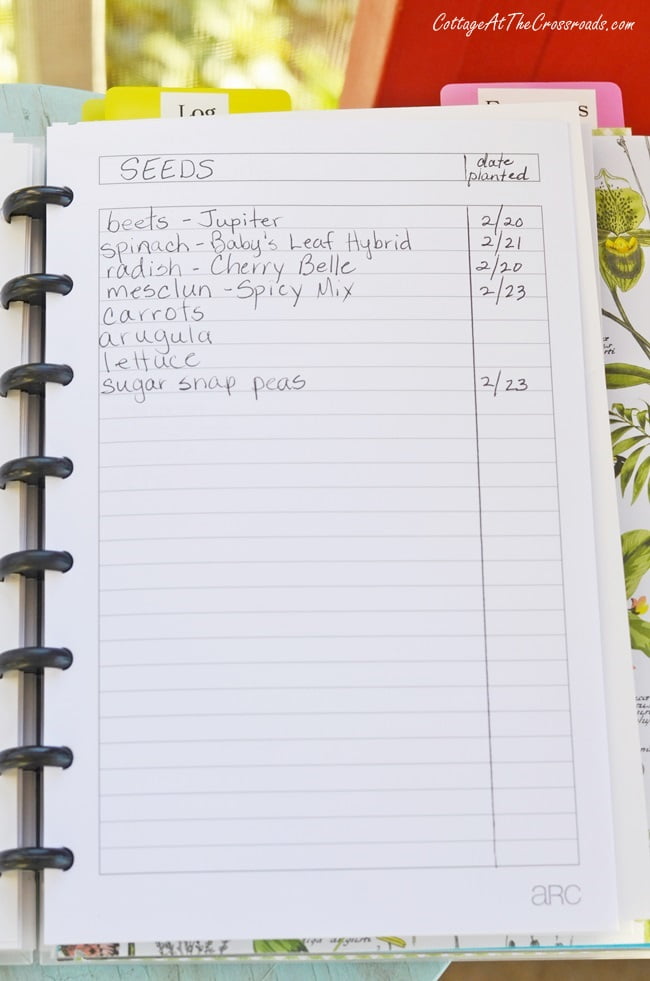 CottageAtTheCrossroads.com
Log
SEEDS
date
planted
beets - Jupiter 2/20
spinach - Baby's Leaf Hybrid 2/21
radish - Cherry Belle 2/20
mesclun - Spicy Mix 2/23
carrots
arugula
lettuce
sugar snap peas 2/23
aRC